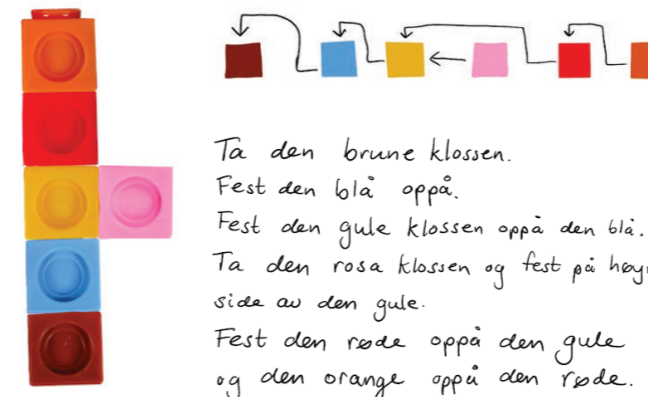 Ta den brune klossen.
Fest den blå oppå.
Fest den gule klossen oppå den blå.
Ta den rosa klossen og fest på
side av den gule.
Fest den røde oppå den gule
og den orange oppå den røde.